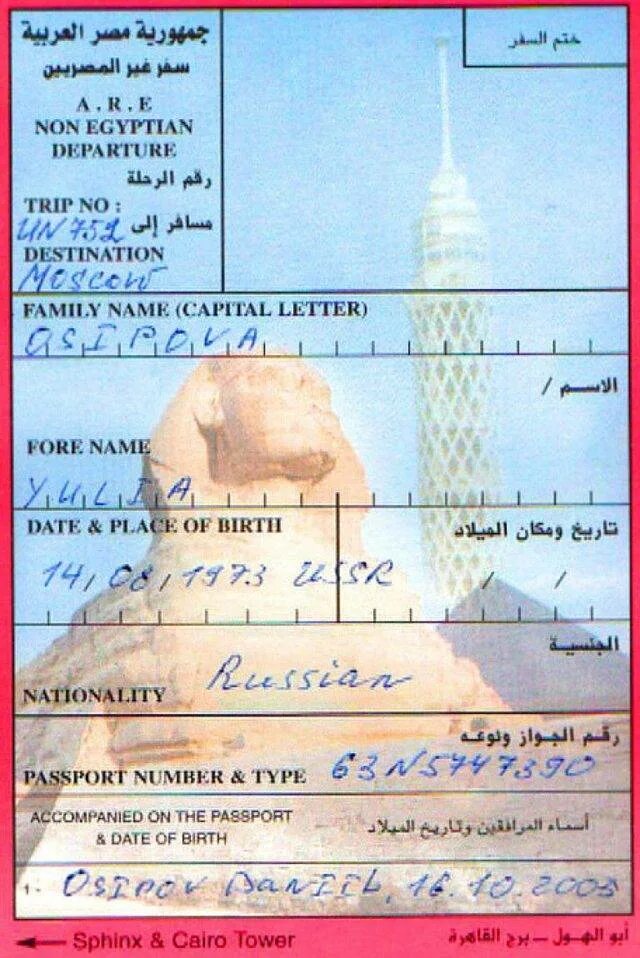 جمهورية مصر العربية
ختم السفر
سفر غير المصريين
A . R . E
NON EGYPTIAN
DEPARTURE
رقم الرحلة
TRIP NO :
UN 752 مسافر إلى
DESTINATION
Moscow
FAMILY NAME (CAPITAL LETTER)
OSIPOVA
الاسم /
FORE NAME
YULIA
DATE & PLACE OF BIRTH تاريخ ومكان الميلاد
14/08/1973 USSR / /
الجنسية
NATIONALITY Russian
رقم الجواز ونوعه
PASSPORT NUMBER & TYPE 63N5747390
ACCOMPANIED ON THE PASSPORT
& DATE OF BIRTH أسماء المرافقين وتاريخ الميلاد
1- OSIPOV DANIIL, 16.10.2005
Sphinx & Cairo Tower أبو الهول – برج القاهرة